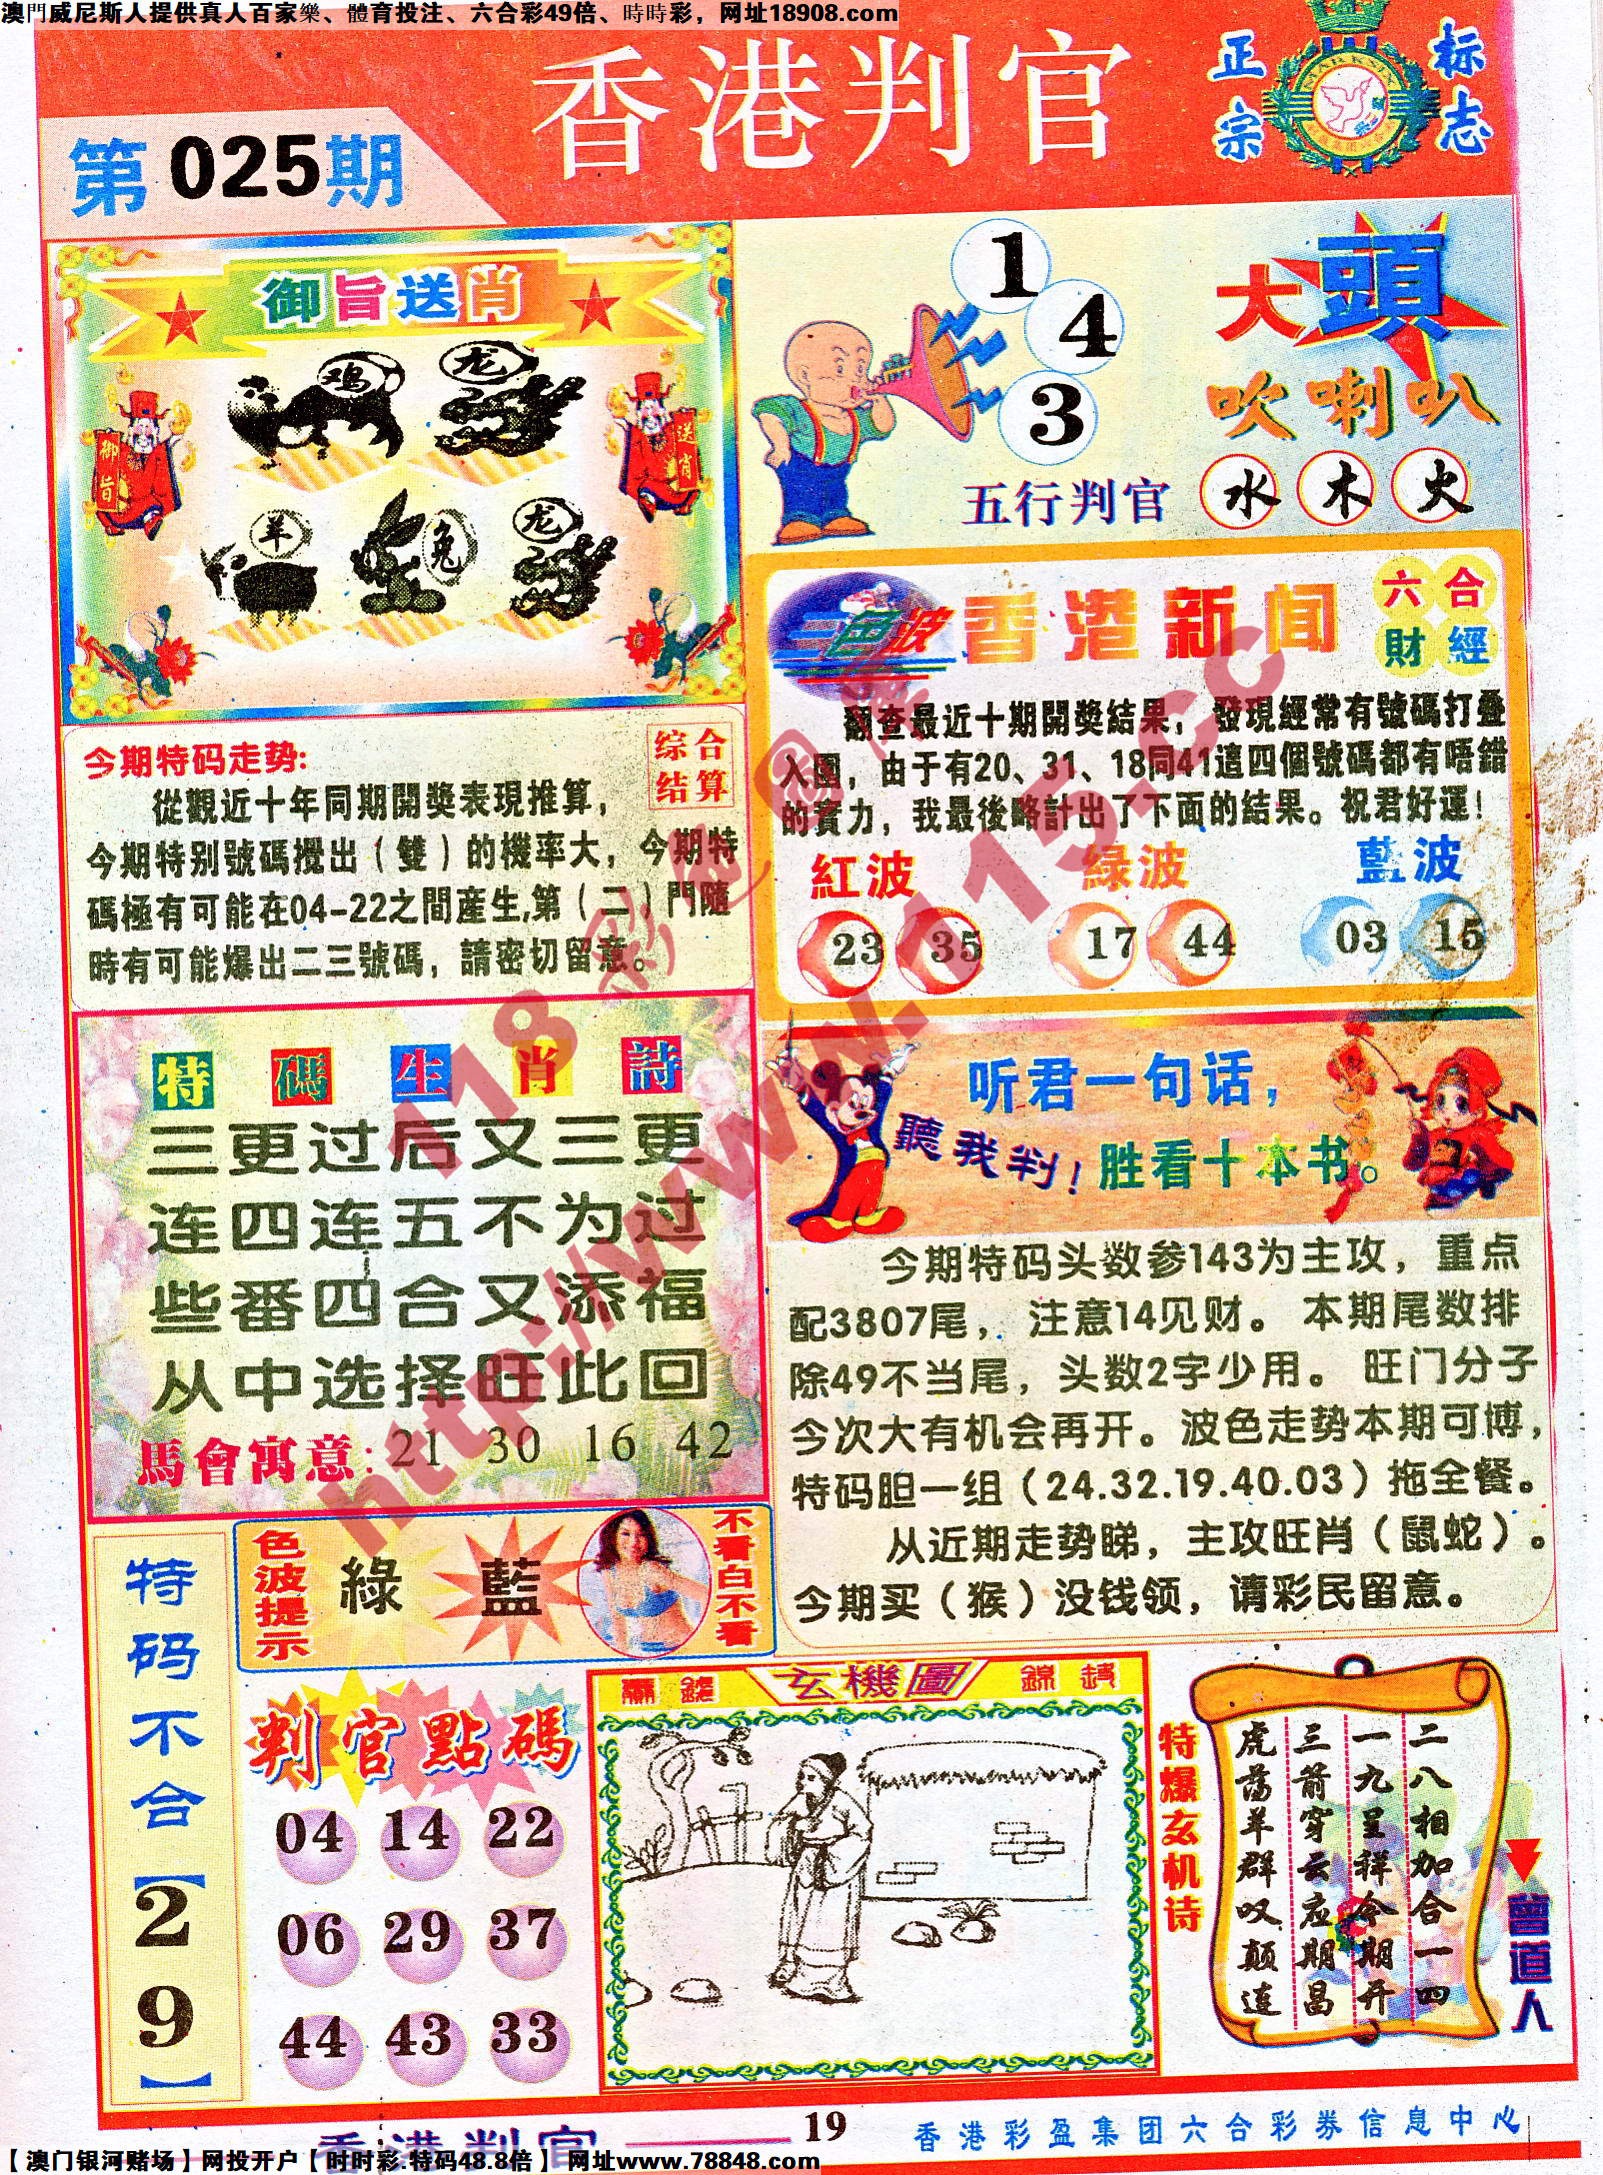 澳門威尼斯人提供真人百家樂、體育投注、六合彩49倍、時時彩，网址18908.com
香港判官
正宗
标志
第025期
御旨送肖
鸡
龙
御旨
送肖
羊
兔
龙
1
4
3
大頭
吹喇叭
五行判官
水木火
今期特码走势:
综合
结算
從觀近十年同期開獎表現推算，
今期特别號碼攪出（雙）的機率大，今期特
碼極有可能在04-22之間產生,第（二）門隨
時有可能爆出二三號碼，請密切留意。
三色波
香港新闻
六合
財經
翻查最近十期開獎結果，發現經常有號碼打叠
入圍，由于有20、31、18同41這四個號碼都有唔錯
的實力，我最後略計出了下面的結果。祝君好運！
紅波
綠波
藍波
23 35 17 44 03 15
特碼生肖詩
三更过后又三更
连四连五不为过
些番四合又添福
从中选择旺此回
馬會寓意: 21 30 16 42
听君一句话，
聽我判！
胜看十本书。
今期特码头数参143为主攻，重点
配3807尾，注意14见财。本期尾数排
除49不当尾，头数2字少用。旺门分子
今次大有机会再开。波色走势本期可博，
特码胆一组（24.32.19.40.03）拖全餐。
从近期走势睇，主攻旺肖（鼠蛇）。
今期买（猴）没钱领，请彩民留意。
特码不合【29】
色波提示
綠
藍
不看白不看
判官點碼
04 14 22
06 29 37
44 43 33
玄機圖
特爆玄机诗
二八相加合一四
一九呈祥今期开
三箭穿云应期昌
虎荡羊群叹颠连
曾道人
118
http://www.115.cc
香港判官
19
香港彩盈集团六合彩券信息中心
【澳门银河赌场】网投开户【时时彩.特码48.8倍】 网址www.78848.com